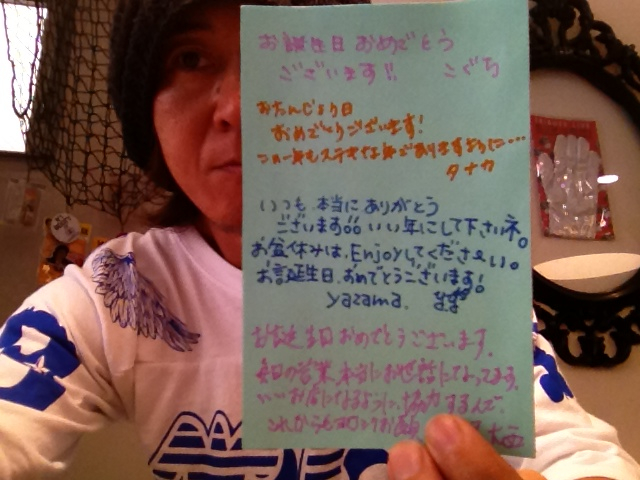 お誕生日 おめでとう
ございます!! こぐち
おたんじょう日
おめでとうございます!
この一年もステキな年でありますように…
タナカ
いつも 本当に ありがとう
ございます。。いい年にして下さいネ。
お盆休みは、Enjoyしてください。
お誕生日、おめでとうございます!
yazama.
お誕生日おめでとうございます。
毎日の営業、本当にお世話になってます。
いいお店になるように、協力するんで、
これからも ヨロシクお願
大西